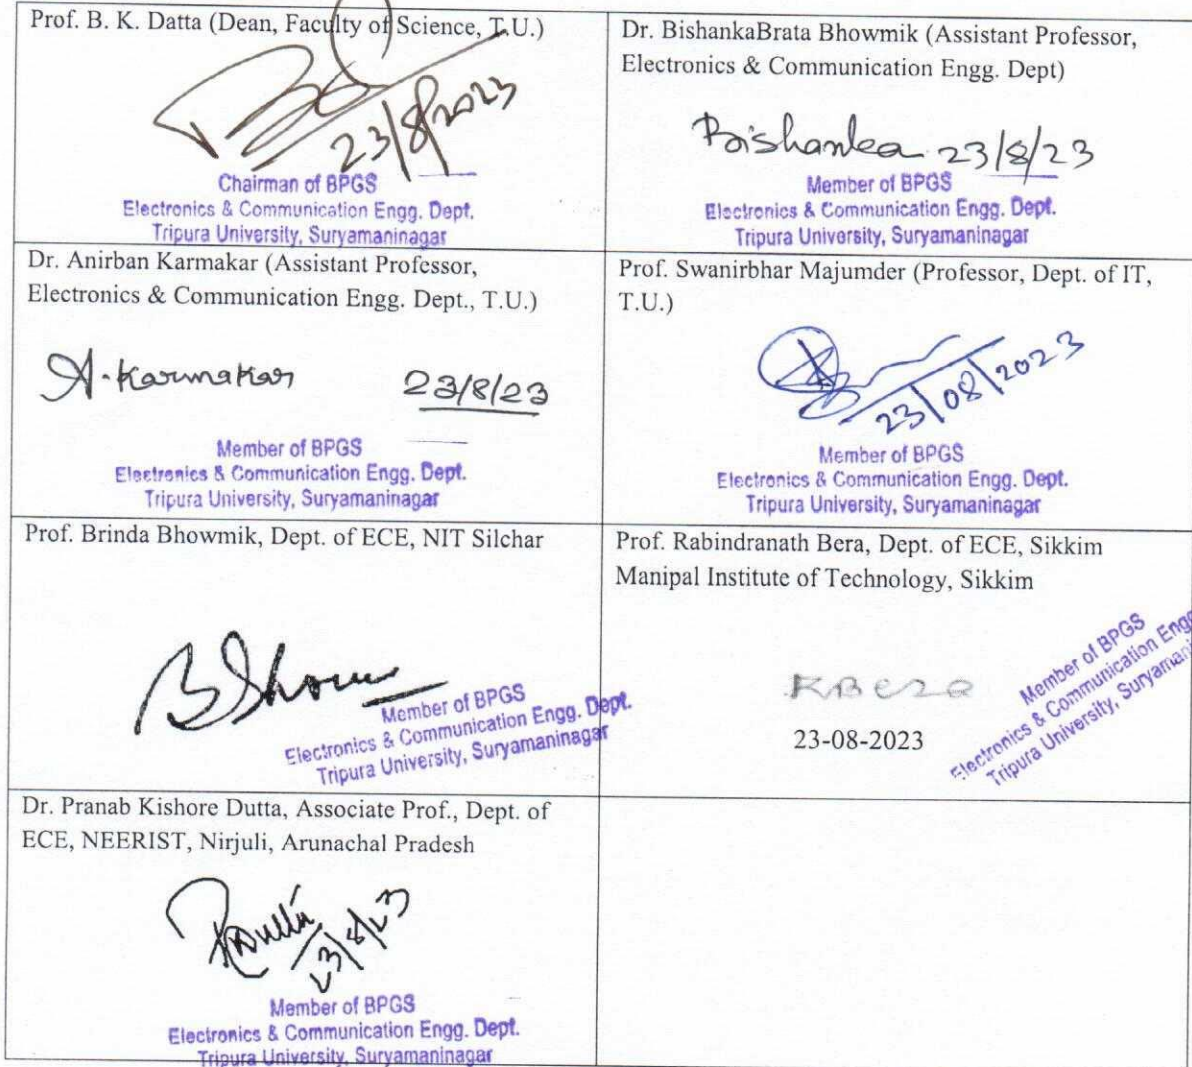 Prof. B. K. Datta (Dean, Faculty of Science, T.U.)
23/8/2023
Chairman of BPGS
Electronics & Communication Engg. Dept.
Tripura University, Suryamaninagar
Dr. BishankaBrata Bhowmik (Assistant Professor,
Electronics & Communication Engg. Dept)
Bishanka 23/8/23
Member of BPGS
Electronics & Communication Engg. Dept.
Tripura University, Suryamaninagar
Dr. Anirban Karmakar (Assistant Professor,
Electronics & Communication Engg. Dept., T.U.)
A. Karmakar 23/8/23
Member of BPGS
Electronics & Communication Engg. Dept.
Tripura University, Suryamaninagar
Prof. Swanirbhar Majumder (Professor, Dept. of IT,
T.U.)
23/08/2023
Member of BPGS
Electronics & Communication Engg. Dept.
Tripura University, Suryamaninagar
Prof. Brinda Bhowmik, Dept. of ECE, NIT Silchar
Member of BPGS
Electronics & Communication Engg. Dept.
Tripura University, Suryamaninagar
Prof. Rabindranath Bera, Dept. of ECE, Sikkim
Manipal Institute of Technology, Sikkim
RBera
23-08-2023
Member of BPGS
Electronics & Communication Engg
Tripura University, Suryamani
Dr. Pranab Kishore Dutta, Associate Prof., Dept. of
ECE, NEERIST, Nirjuli, Arunachal Pradesh
PKDutta
23/8/23
Member of BPGS
Electronics & Communication Engg. Dept.
Tripura University, Suryamaninagar